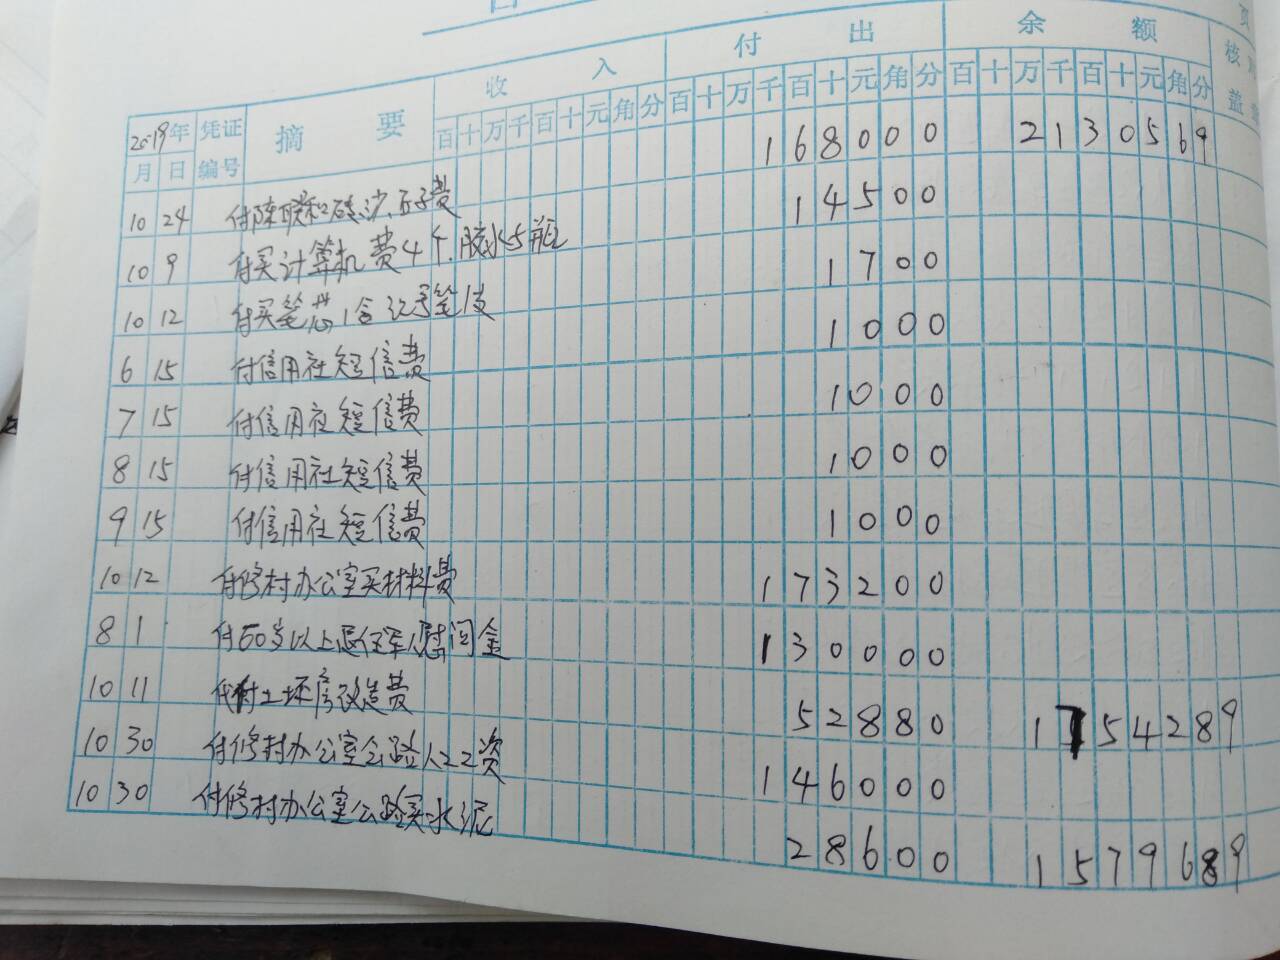 收 入 付 出 余 额 核
2019年 凭证 摘 要 百十万千百十元角分 百十万千百十元角分 百十万千百十元角分 盖
月 日 编号
10 24 付陈联和砖、沙、石子费 168000 2130569
10 9 付买计算机费4个.胶水5瓶 14500
10 12 付买笔芯1合记号笔1支 1700
6 15 付信用社短信费 1000
7 15 付信用社短信费 1000
8 15 付信用社短信费 1000
9 15 付信用社短信费 1000
10 12 付修村办公室买材料费 173200
8 1 付60岁以上退伍军人慰问金 130000
10 11 代付土坯房改造费 52880 1754289
10 30 付修村办公室公路人工工资 146000
10 30 付修村办公室公路买水泥 28600 1579689